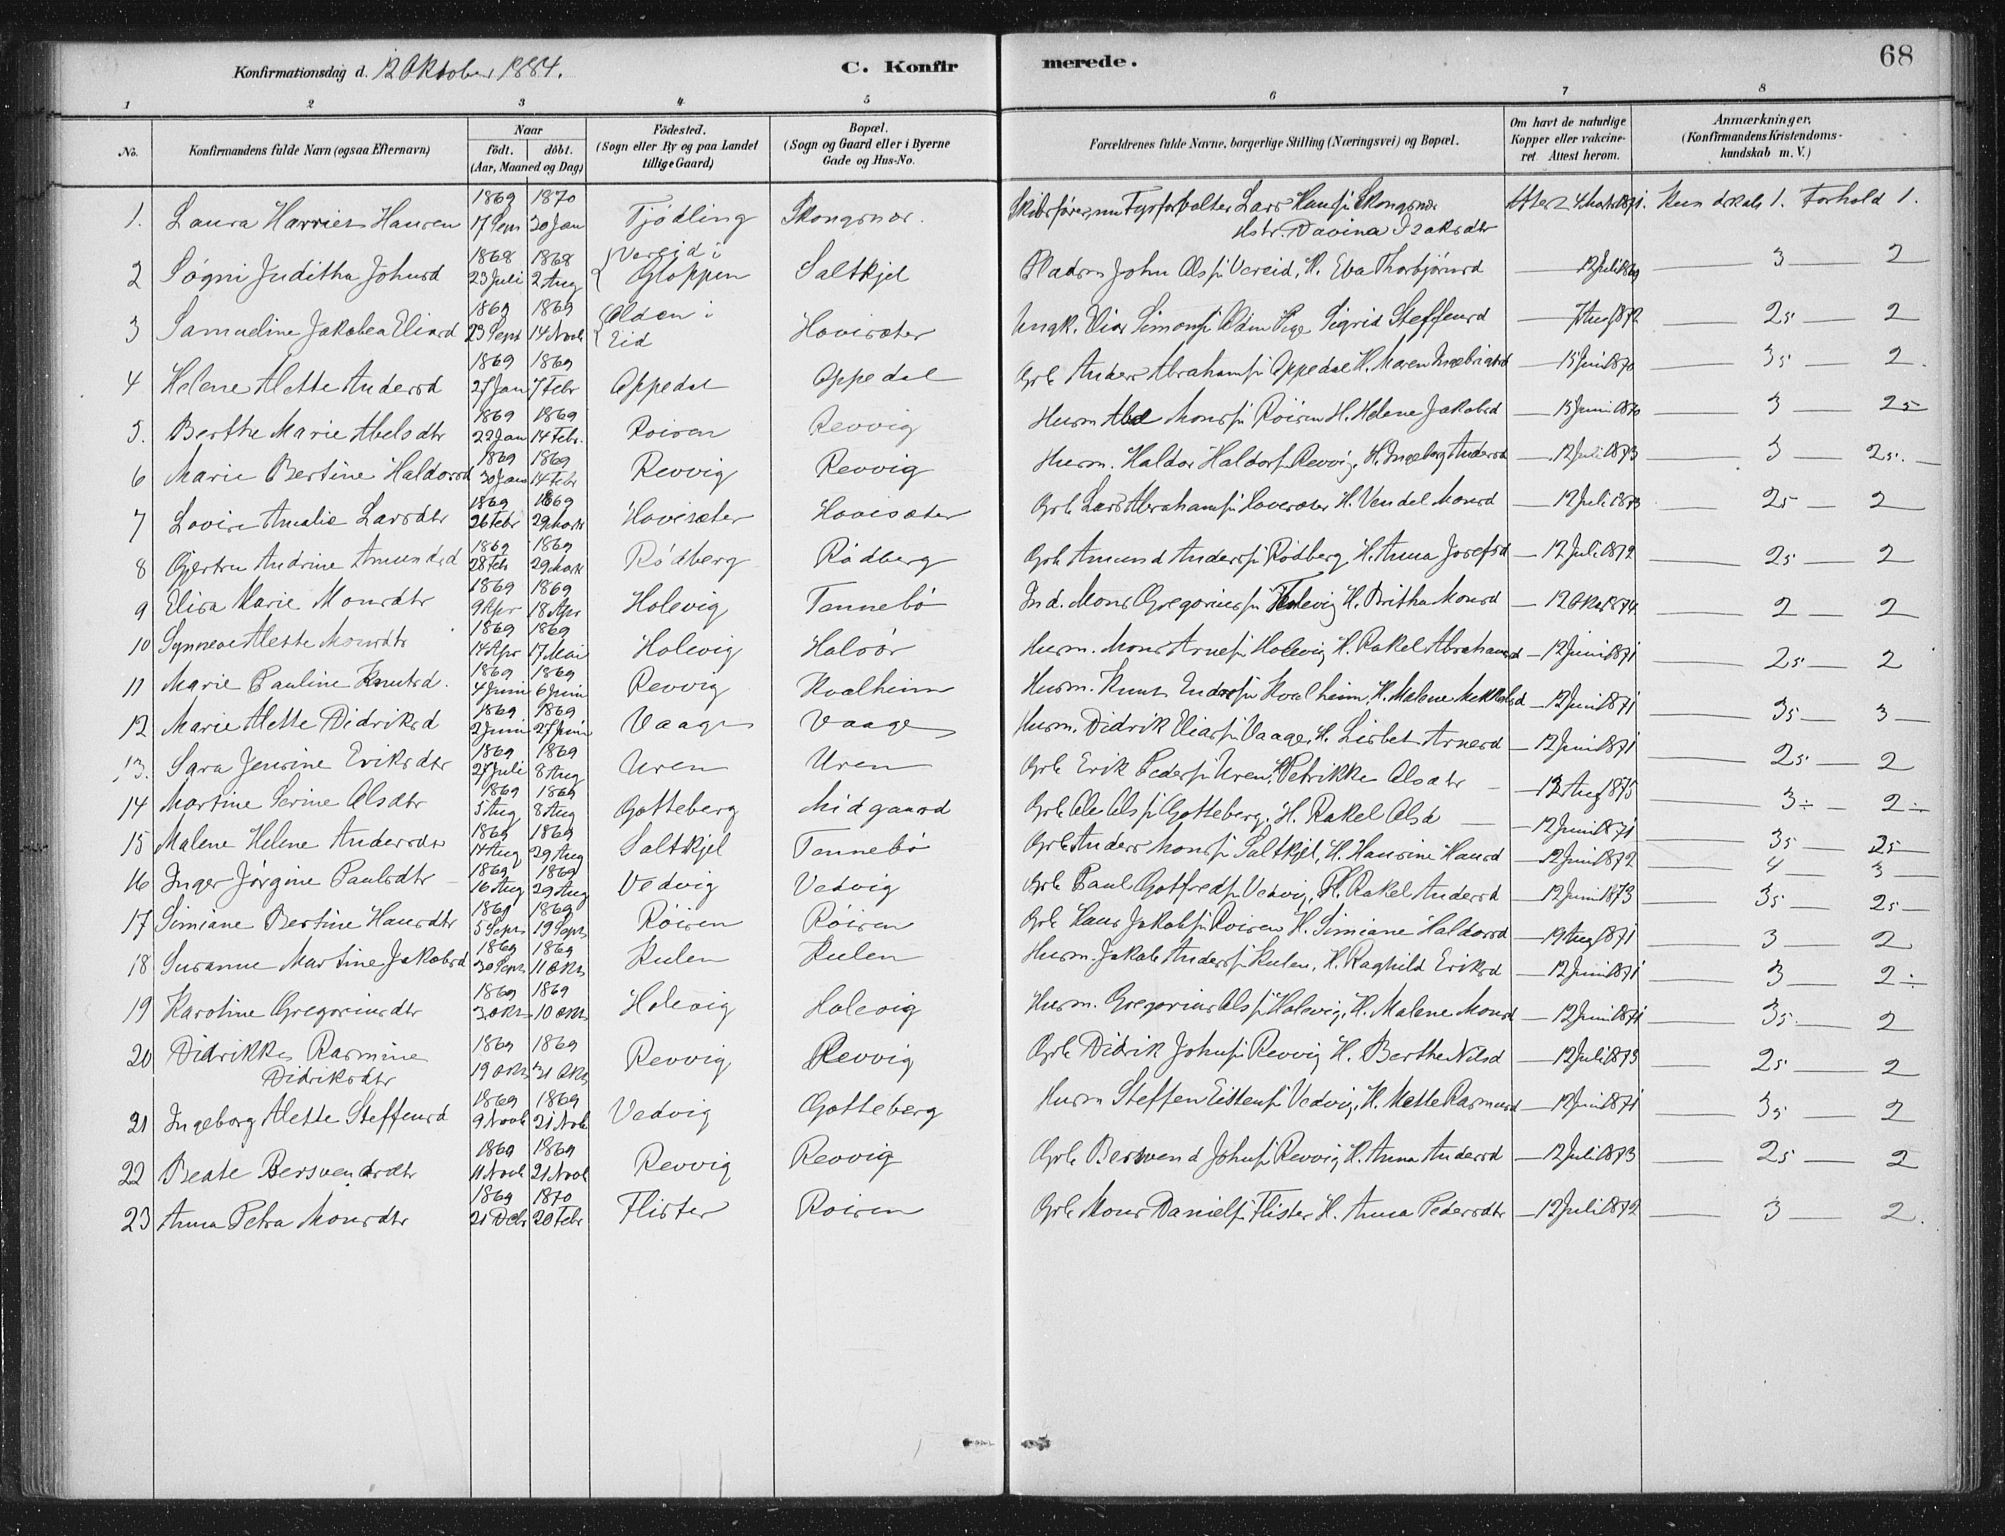 Konfirmationsdag d. 12 Oktober 1884.
C. Konfir merede.
68
1 2 3 4 5 6 7 8
No.
Konfirmandens fulde Navn (ogsaa Efternavn)
Naar
födt. döbt.
(Aar, Maaned og Dag)
Födested.
(Sogn eller By og paa Landet
tillige Gaard)
Bopæl.
(Sogn og Gaard eller i Byerne
Gade og Hus-No.
Forældrenes fulde Navne, borgerlige Stilling (Næringsvei) og Bopæl.
Om havt de naturlige
Kopper eller vakcine-
ret. Attest herom.
Anmærkninger.
(Konfirmandens Kristendoms-
kundskab m. V.)
1869 1870
1. Laura Harriet Hansen 17 Sept 30 Jan Tjødling Skongsnæs. Lars Hansøn Skongsnæs Attest 1871. Kundskab 1. Forhold 1.
Hstr. Davina Izaksdtr
1868 1868 Vereid i
2 Søgni Juditha Johnsd 23 Juli 2 Aug Gloppen Saltkjel John Olsøn Vereid, H. Eva Thorbjørnsd — 12 Juli 1869 — 3 — 2
1869 1869 Alden i
3 Samueline Jakobea Eliasd 23 Sept 14 Novb Eid Hovisæter Ungk. Elias Simonsøn Pige Sigrid Steffensd — 7 Aug 1872 — 25 — 2
1869 1869
4 Helene Alette Andersd 27 Jan 7 Febr Oppedal Oppedal Grb Anders Abrahamsøn Oppedal H. Maren Ingebrigtsd — 15 Juni 1870 — 35 — 2.
1869 1869
5. Berthe Marie Abelsdtr 22 Jan 14 Febr. Roisen Revvig Husm Abel Monssøn Röisen H. Helene Jakobsd — 15 Juni 1870 — 3 — 25
1869 1869
6 Marie Bertine Haldorsd 30 Jan 14 Febr Revvig Revvig Husm. Haldor Haldorsøn Revvig, H. Ingeborg Andersd — 12 Juli 1873 — 3 — 25. —
1869 1869
7 Lovise Amalie Larsdtr 26 Febr 29 Marts Hovesæter Hovisæter Grb Lars Abrahamsøn Hovesæter H. Vendel Monsd — 12 Juli 1873 — 25 — 2
1869 1869
8 Gjertru Andrine Amundsd 28 Feb 29 Marts Rødberg Rødberg Grb Amund Andersøn Rødberg H. Anna Josefsd — 12 Juli 1872 — 25 — 2
1869 1869
9 Elisa Marie Monsdtr 9 Apr 18 Apr Holevig Tennebö Ind. Mons Gregoriussøn Holevig H. Britha Monsd — 12 Okt 1874 — 2 — 2
1869 1869
10 Synneve Alette Monsdtr 14 Apr 17 Mai Holevig Halvör Husm. Mons Arnesøn Holevig H. Rakel Abrahamsd — 12 Juni 1871 — 25 — 2
1869 1869
11 Marie Pauline Knutsd. 4 Juni 6 Juni Revvig Kvalheim Husm. Knut Endresøn Kvalheim, H. Malene — 12 Juni 1871 — 35 — 3 —
1869 1869
12 Marie Alette Didriksd 2 Juni 27 Juni Vaage Vaage Husm. Didrik Eliassøn Vaage, H. Lisbet Arnesd — 12 Juni 1871 — 25 — 2
1869 1869
13. Sara Jensine Eriksdtr 27 Juli 8 Aug Uren Uren Grb Erik Pedersøn Uren, Petrikke Olsdtr — 12 Aug 1875 — 3÷ — 2÷
1869 1869
14 Martine Serine Olsdtr 5 Aug 8 Aug Gotteberg Midgaard Grb Ole Olsøn Gotteberg. H. Rakel Olsd — 12 Juni 1871 — 35 — 25
1869 1869
15 Malene Helene Andersdtr 14 Aug 29 Aug Saltkjel Tennebö Grb Anders Monsøn Saltkjel, H. Hansine Hansd — 12 Juni 1872 — 4 — 3 —
1869 1869
16 Inger Jørgine Paulsdtr 16 Aug 29 Aug Vedvig Vedvig Grb Paul Gotfredsøn Vedvig, H. Rakel Andersd — 12 Juni 1873 — 35 — 25 —
1869 1869
17 Simiane Bertine Hansdtr 5 Sept 19 Sept Röisen Röisen Grb Hans Jakobsøn Roisen H. Simiane Haldorsd — 19 Aug 1871 — 3 — 2
1869 1869
18 Susanne Martine Jakobsd 30 Sept 11 Okt Kulen Kulen Husm. Jakob Andersøn Kulen, H. Raghild Eriksd — 12 Juni 1871 — 3 — 2÷
1869 1869
19 Karoline Gregoriusdtr 3 Okt 10 Okt Holevig Holevig Husm. Gregorius Olsøn Holevig, H. Malene Monsd — 12 Juni 1871 — 35 — 2
1869 1869
20 Didrikke Rasmine 19 Okt 31 Okt Revvig Revvig Grb Didrik Johnsøn Revvig H. Berthe Nilsd — 12 Juli 1873 — 25 — 2
Didriksdtr
1869 1869
21 Ingeborg Alette Steffensd 9 Novb 21 Novb Vedvig Gotteberg Husm Steffen Vedvig, H. Mette Rasmusd — 12 Juni 1871 — 35 — 2
1869 1869
22 Beate Bersvendsdtr 11 Novb 21 Novb Revvig Revvig Grb Bersvend Johnsøn Revvig H. Anna Andersd — 12 Juli 1873 — 25 — 2
1869 1870
23 Anna Petra Monsdtr 21 Debr 20 Febr Flister Roisen Grb Mons Danielsøn Flister H. Anna Pedersdtr — 12 Juli 1872 — 3 — 2.